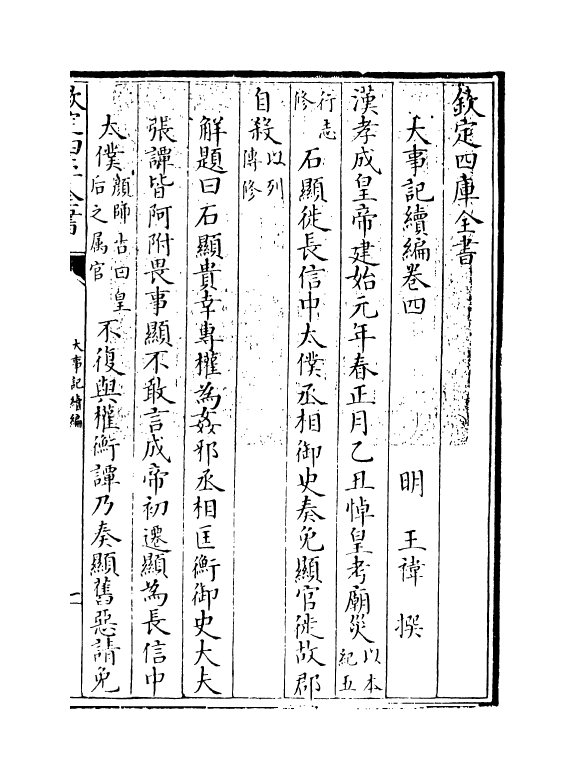 欽定四庫全書
大事記續編卷四
明 王禕 撰
漢孝成皇帝建始元年春正月乙丑悼皇考廟災以本紀五
行志修 石顯徙長信中太僕丞相御史奏免顯官徙故郡
自殺以列傳修
解題曰石顯貴幸專權為姦邪丞相匡衡御史大夫
張譚皆阿附畏事顯不敢言成帝初遷顯為長信中
太僕顔師古曰皇后之属官不復與權衡譚乃奏顯舊惡請免
欽定四庫全書
大事記續編
一